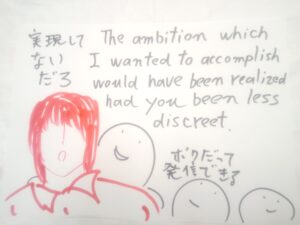 実現して
ない
だろ
The ambition which
I wanted to accomplish
would have been realized
had you been less
discreet.
ボクだって
発信できる